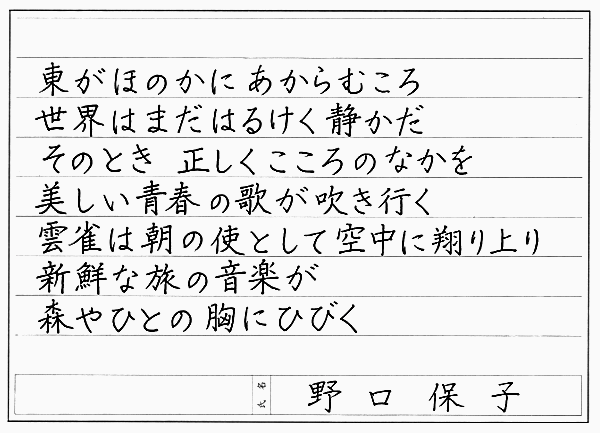 東がほのかにあからむころ
世界はまだはるけく静かだ
そのとき 正しくこころのなかを
美しい青春の歌が吹き行く
雲雀は朝の使として空中に翔り上り
新鮮な旅の音楽が
森やひとの胸にひびく
氏名 野口保子